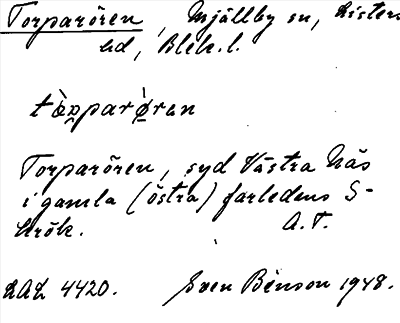 Torparören, Mjällby sn, Listers
hd, Blek. l.
Torparören, syd Västra Näs
i gamla (östra) farledens S-
krök. A.T.
LAL 4420. Sven Benson 1948.